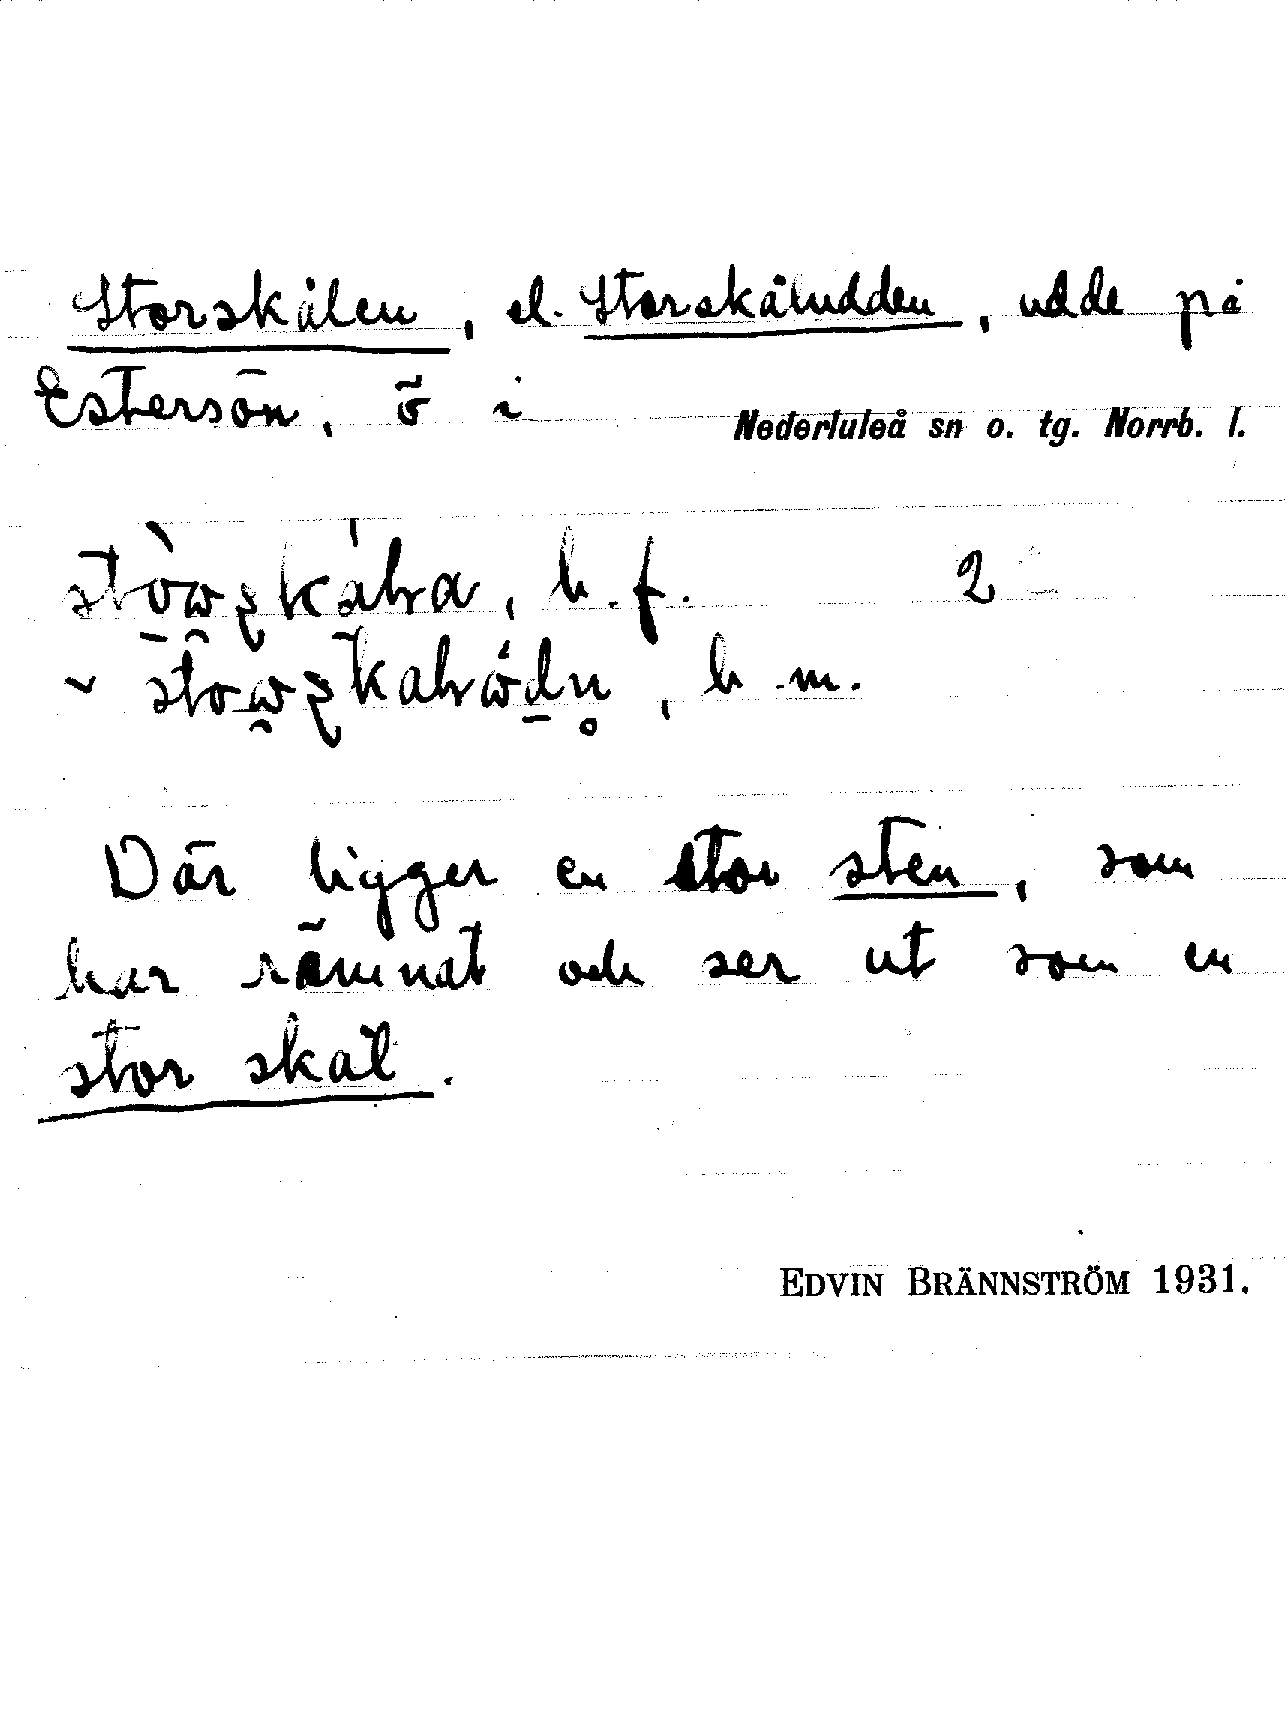 Storskålen, el. Storskåludden, udde på
Estersön, ö i Nederluleå sn o. tg. Norrb. l.
b. f. 2
~ b. m.
Där ligger en stor sten, som
har rämnat och ser ut som en
stor skål.
EDVIN BRÄNNSTRÖM 1931.